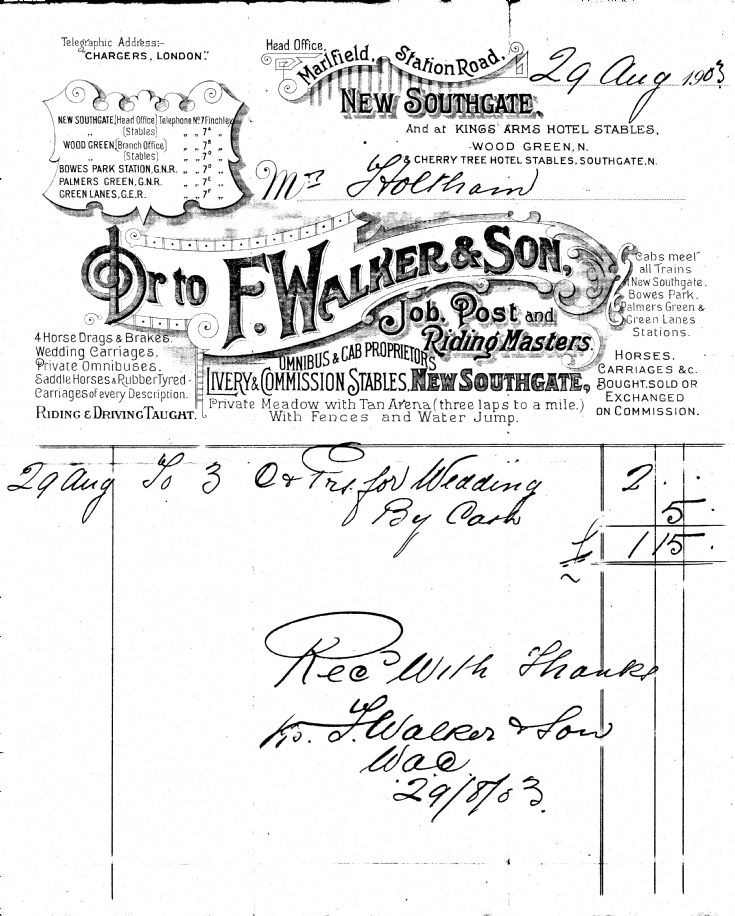 Telegraphic Address:-
"CHARGERS, LONDON."
Head Office,
Marlfield, Station Road,
NEW SOUTHGATE,
29 Aug 1903
And at KINGS ARMS HOTEL STABLES,
WOOD GREEN, N.
& CHERRY TREE HOTEL STABLES, SOUTHGATE, N.
NEW SOUTHGATE, (Head Office) Telephone No. 7 Finchley
„ (Stables) „ „ 7A „
WOOD GREEN, (Branch Office) „ „ 7B „
„ (Stables) „ „ 7C „
BOWES PARK STATION, G.N.R. „ „ 7D „
PALMERS GREEN, G.N.R. „ „ 7E „
GREEN LANES, G.E.R. „ „ 7F „
Mr Holtham
Dr to F. WALKER & SON,
Job, Post and
Riding Masters,
OMNIBUS & CAB PROPRIETORS
LIVERY & COMMISSION STABLES, NEW SOUTHGATE,
Private Meadow with Tan Arena (three laps to a mile.)
With Fences and Water Jump.
4 Horse Drags & Brakes,
Wedding Carriages,
Private Omnibuses,
Saddle Horses & Rubber Tyred
Carriages of every Description.
RIDING & DRIVING TAUGHT.
Cabs meet
all Trains
New Southgate,
Bowes Park,
Palmers Green &
Green Lanes
Stations.
HORSES,
CARRIAGES &c.
BOUGHT, SOLD OR
EXCHANGED
ON COMMISSION.
29 Aug To 3 C & Prs. for Wedding 2 . .
By Cash 5 .
£ 1 15 .
Recd With Thanks
F. Walker & Son
29/8/03